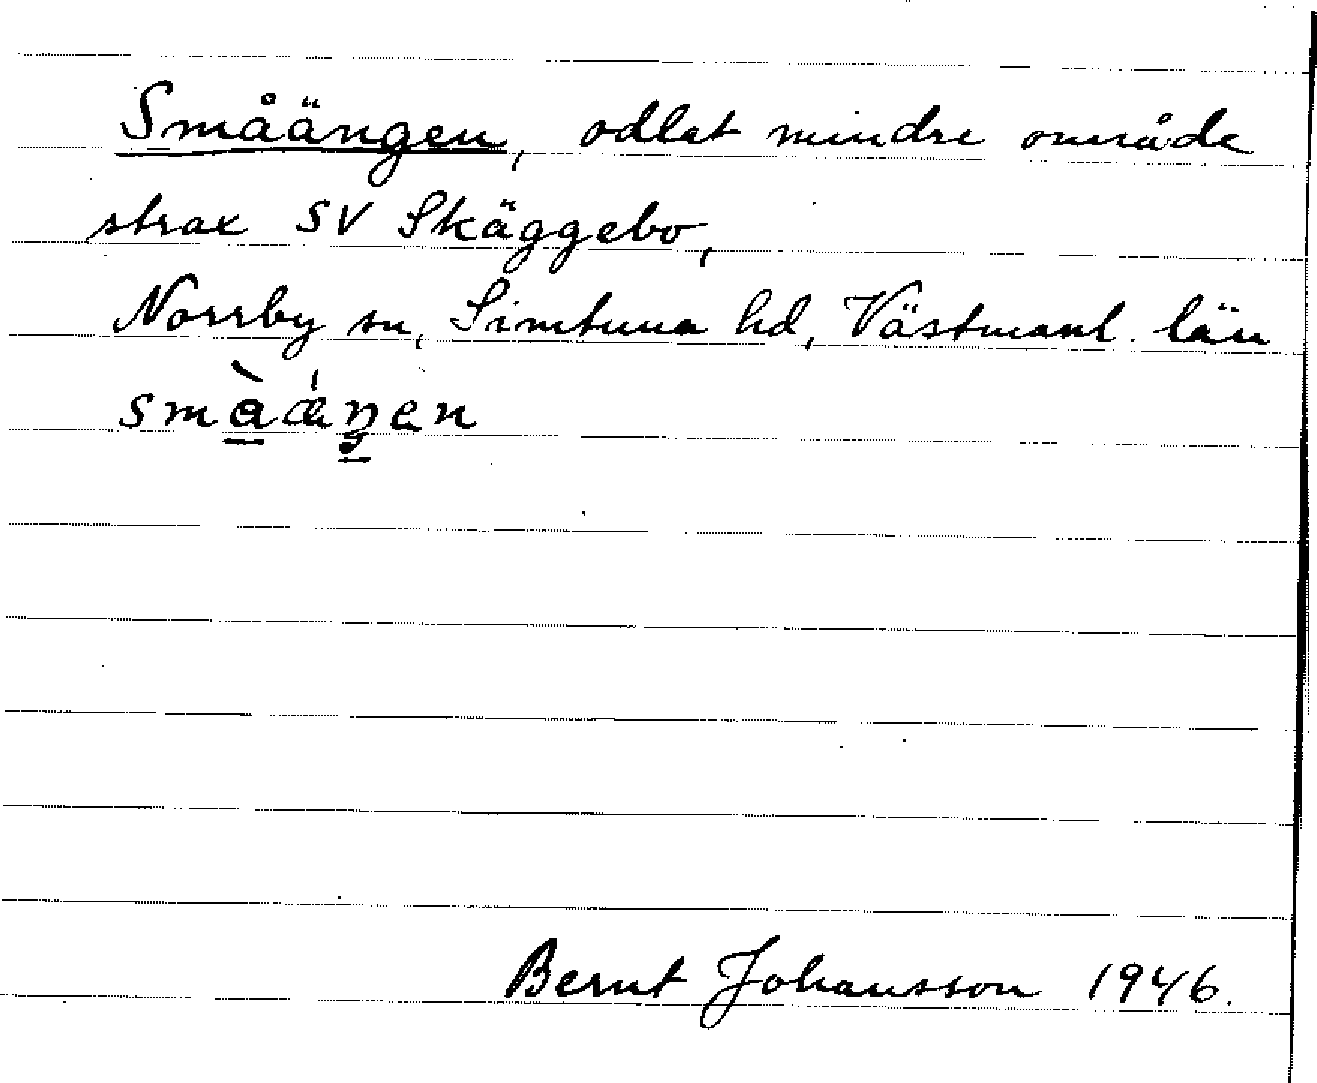 Småängen, odlat mindre område
strax SV Skäggebo,
Norrby sn, Simtuna hd, Västmanl. län
smàǽŋen
Bernt Johansson 1946.